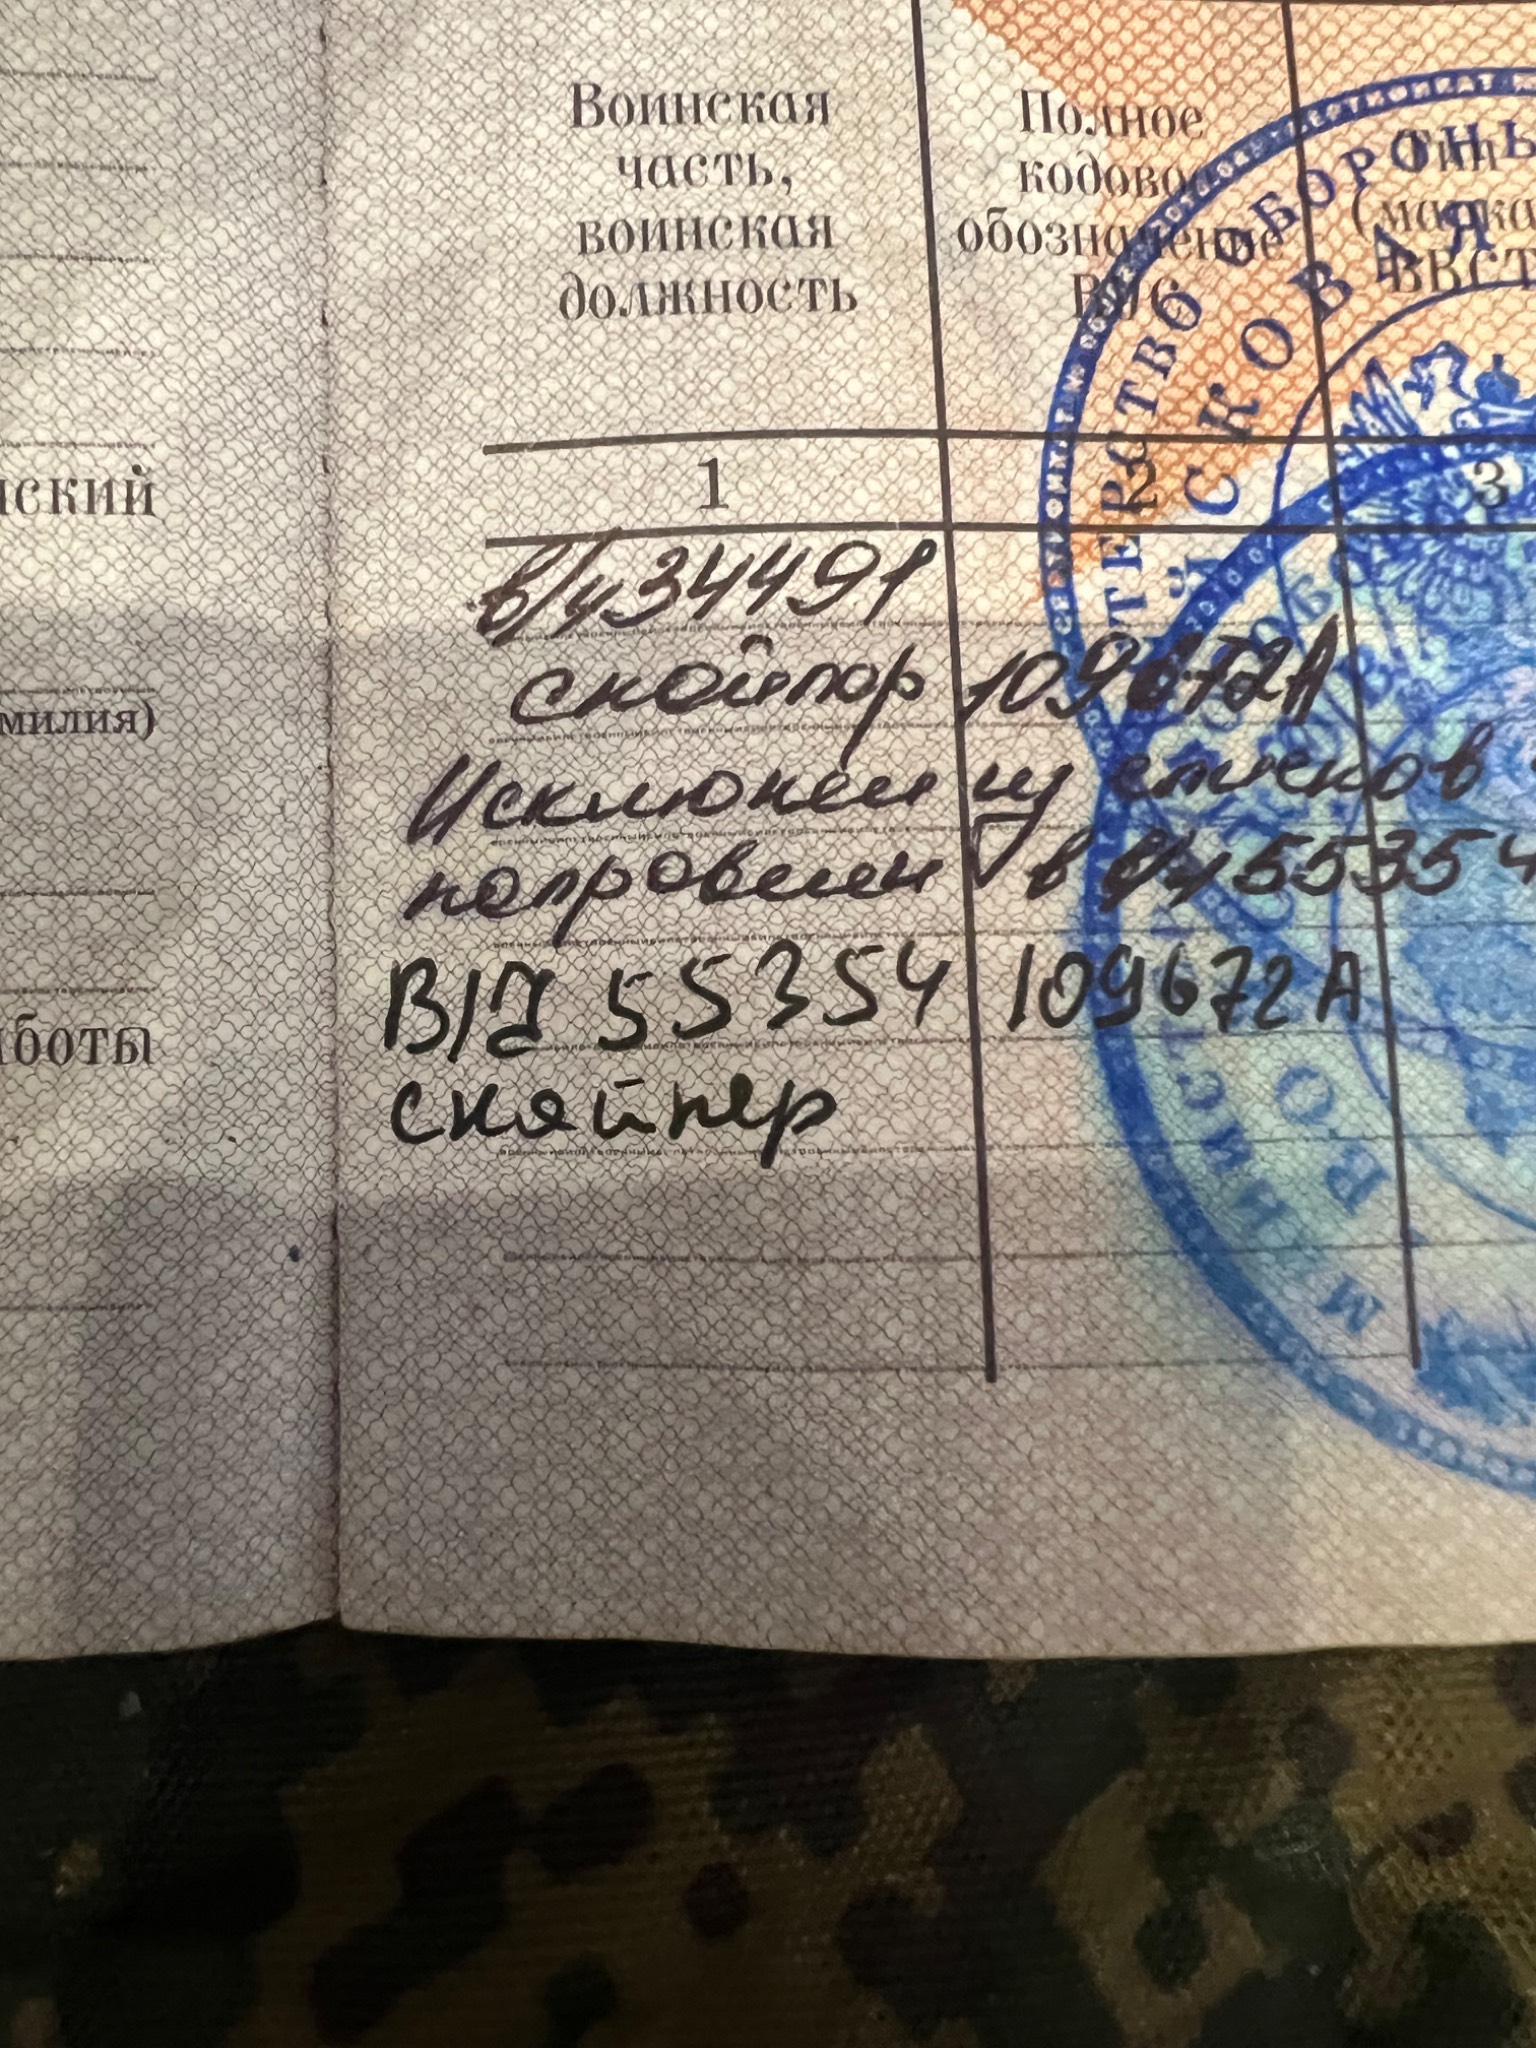 нский
милия)
аботы
Воинская
часть,
воинская
должность
Полное
кодовое
обозначение
ВУС
Тип
(марка
ВВСТ
1
2
3
в/ч 34491
снайпер 109672А
Исключен из списков
направлен в в/ч 55354
В/Ч 55354 109672А
снайпер
МИНИСТЕРСТВО ОБОРОНЫ
ВОЙСКОВАЯ